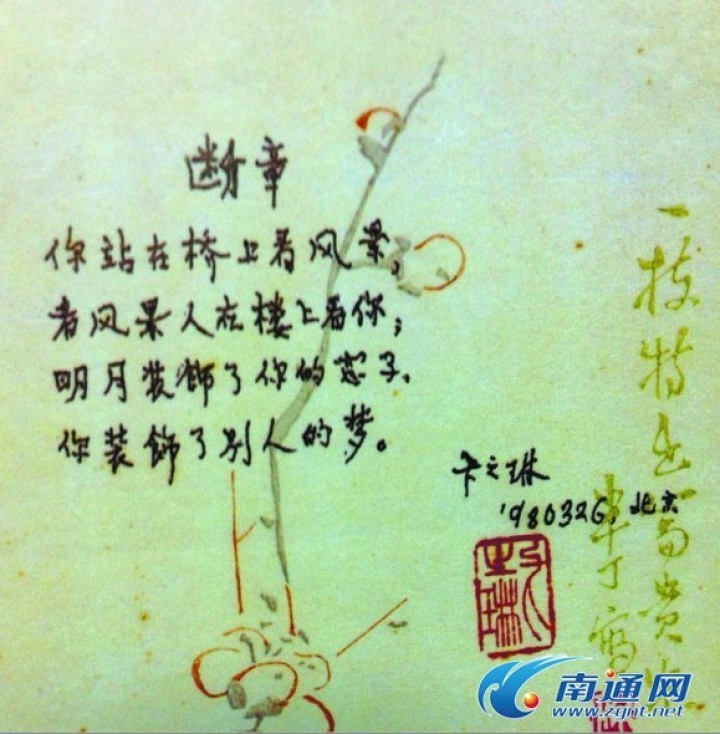 断章
你站在桥上看风景，
看风景人在楼上看你；
明月装饰了你的窗子，
你装饰了别人的梦。
卞之琳
1980326，北京
卞之琳
一枝特出富贵
半丁写
南通网
www.zgnt.net